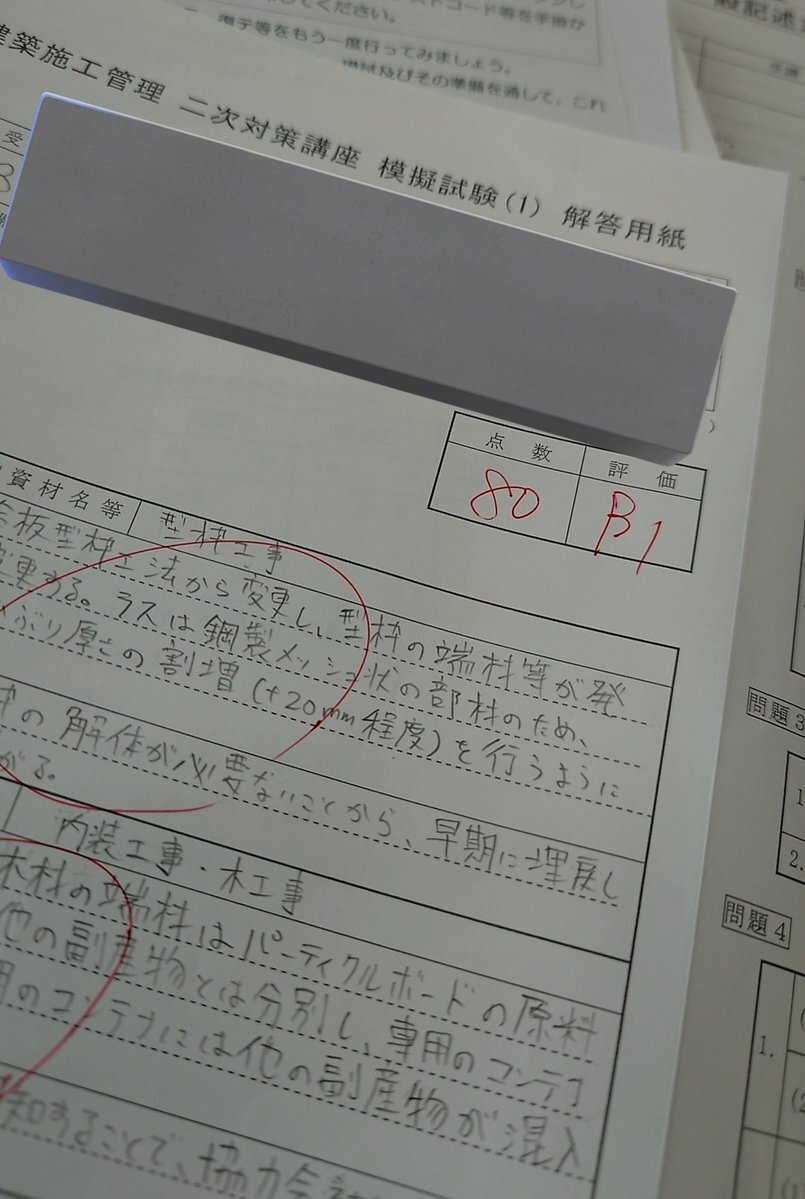 してください。
ストコード等を手掛か
復テ等をもう一度行ってみましょう。
模試及びその準備を通して、これ
建築施工管理 二次対策講座 模擬試験(1) 解答用紙
受
点数 評価
80 B1
資材名等 型枠工事
合板型枠工法から変更し、型枠の端材等が発
変更する。ラスは鋼製メッシュ状の部材のため、
かぶり厚さの割増(+20mm程度)を行うように
の解体が必要ないことから、早期に埋戻し
がる。
内装工事・木工事
木材の端材はパーティクルボードの原料
他の副産物とは分別し、専用のコンテナ
用のコンテナには他の副産物が混入
知することで、協力会
問題3
1
2.
問題4
1.